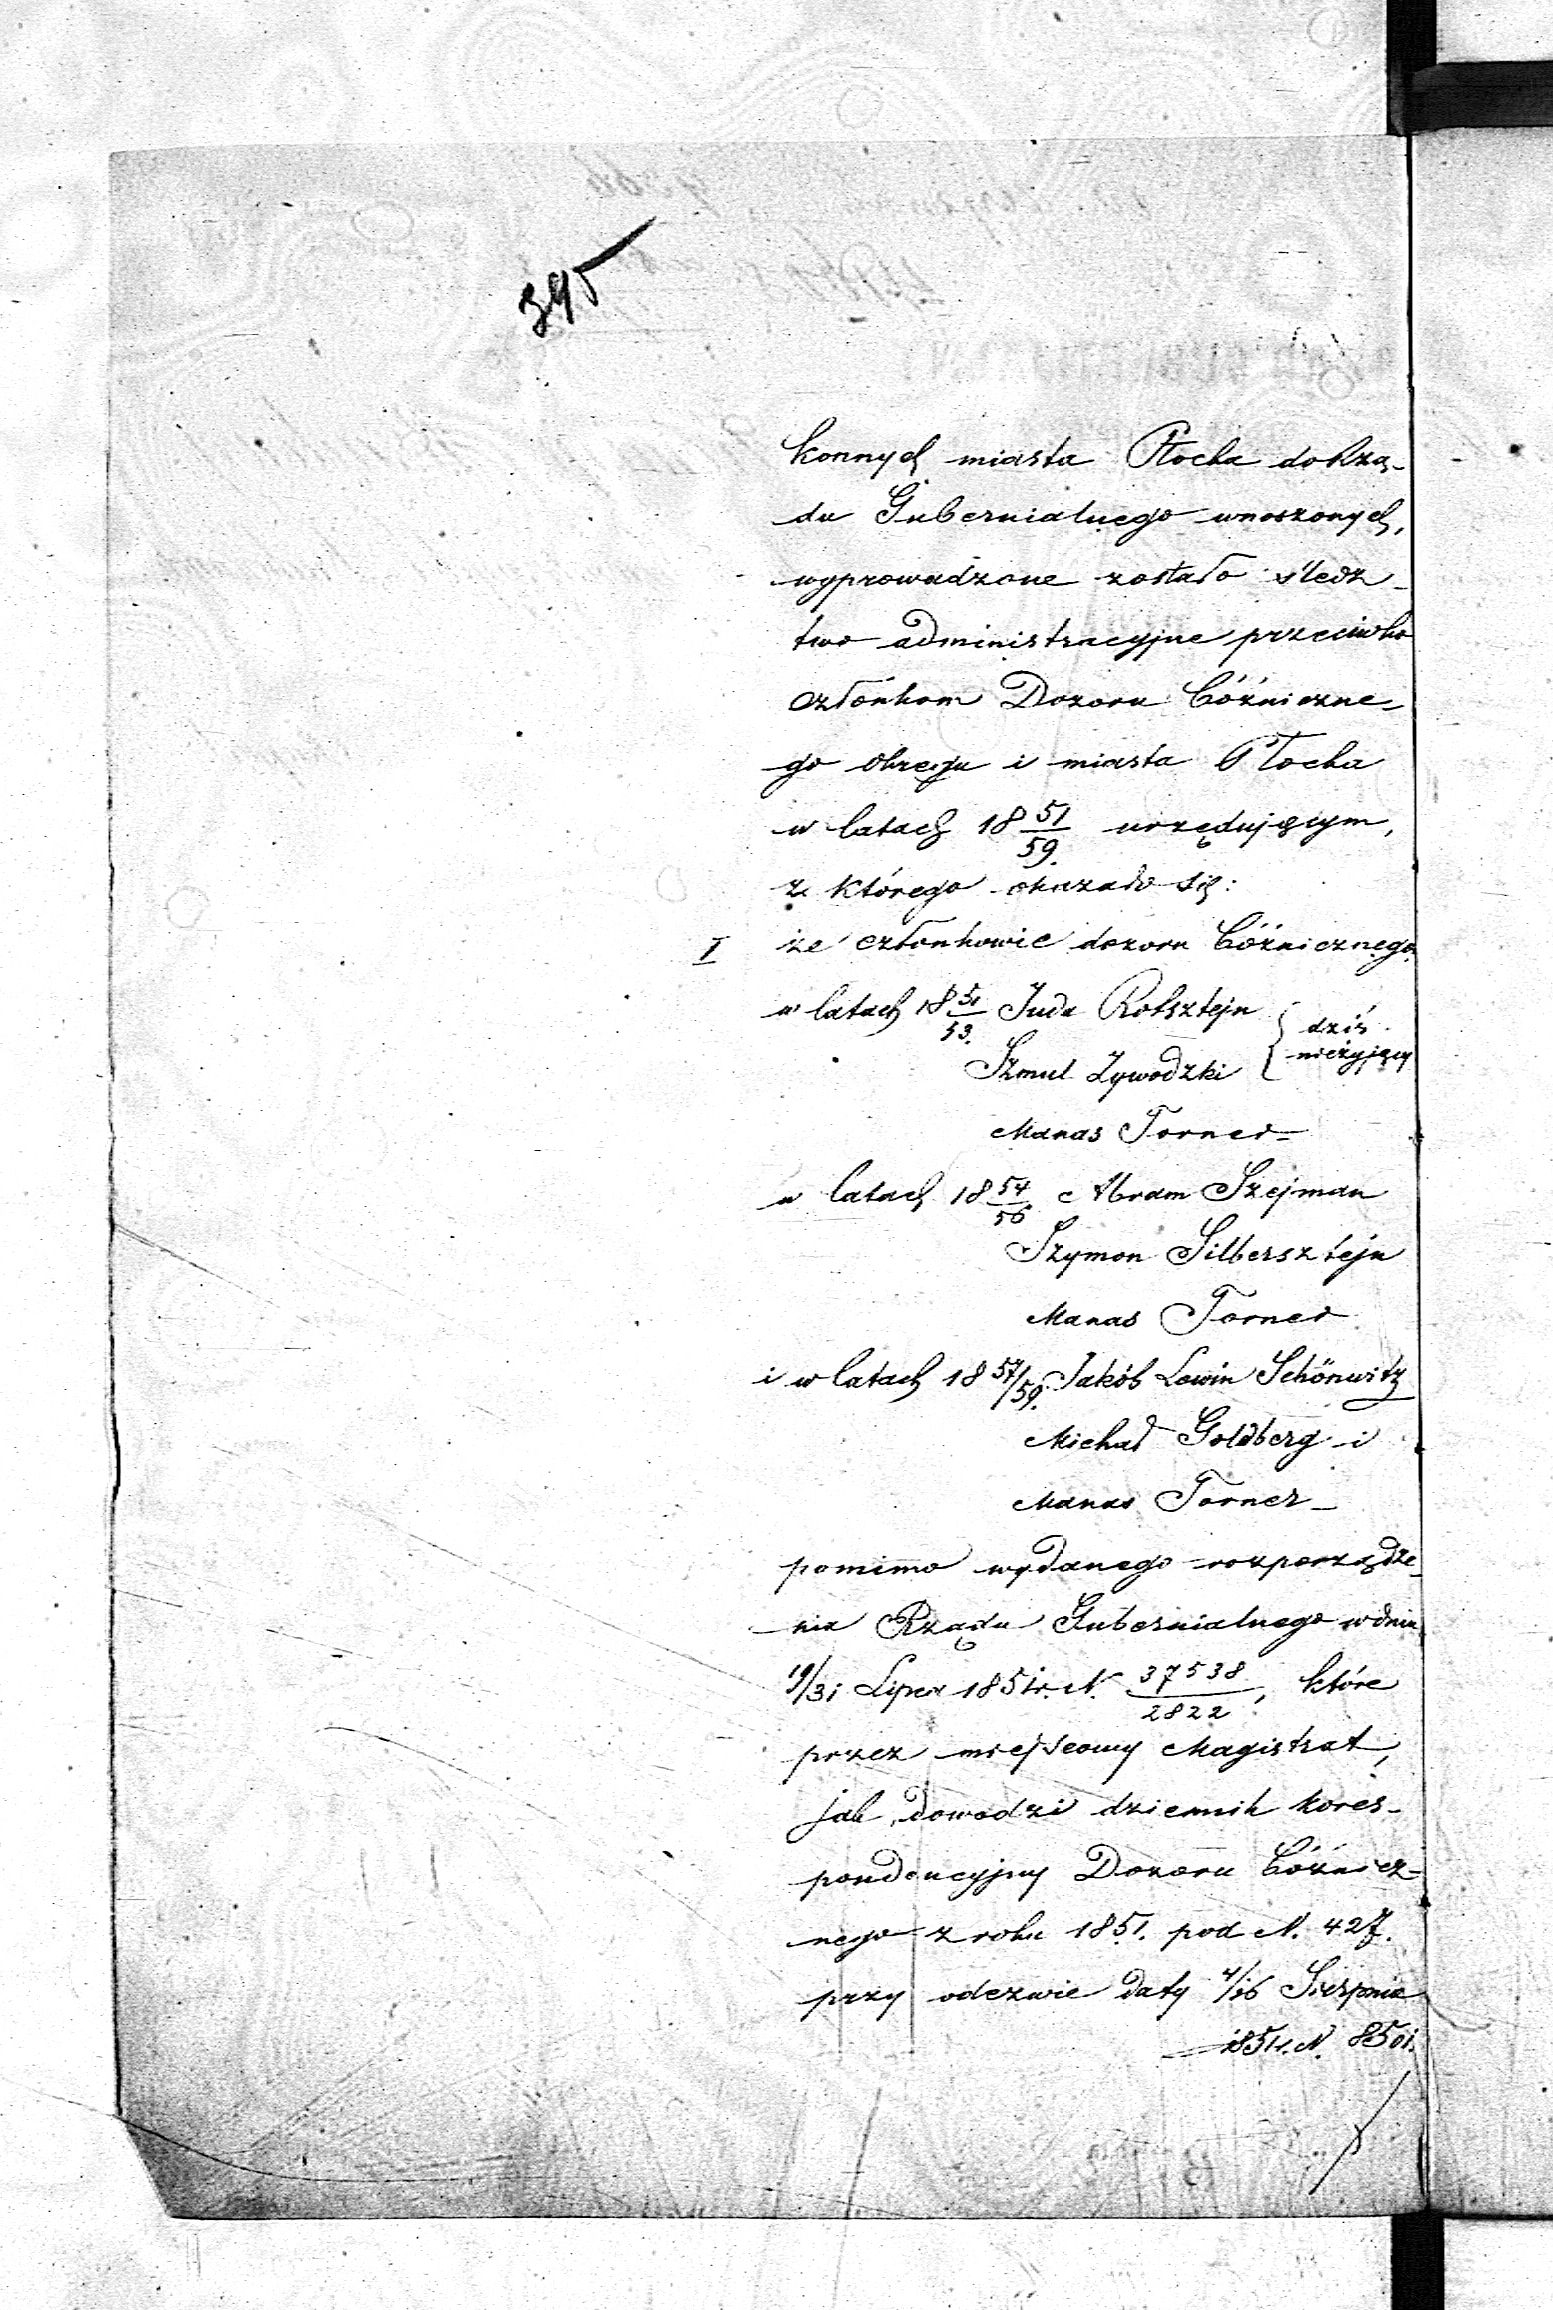 395
konnych miasta Płocka do Rzą-
du Gubernialnego wnoszonych,
wyprowadzone zostało śledz-
two administracyjne przeciwko
członkom Dozoru Bóżniczne-
go okręgu i miasta Płocka
w latach 18 51/59. urzędującym,
z którego okazało się:
I że członkowie dozoru Bóżnicznego
w latach 18 51/53. Juda Rotsztejn
Szmul Zywodzki { dziś nieżyjący
Manas Torner
w latach 18 54/56 Abram Szejman
Szymon Silbersztejn
Manas Torner
i w latach 18 57/59. Jakób Lewin Schönwitz
Michał Goldberg i
Manas Torner
pomimo wydanego rozporządze-
nia Rządu Gubernialnego w dniu
19/31 Lipca 1851 r. N. 37538/2822, które
przez miejscowy Magistrat,
jak dowodzi dziennik kores-
pondencyjny Dozoru Bóżnicz-
nego z roku 1851. pod N. 427.
przy odezwie daty 4/16 Sierpnia
1851 r. N. 8501.